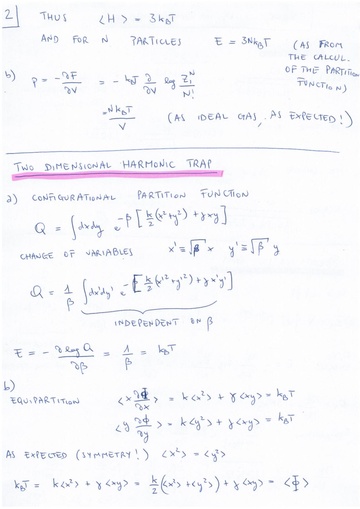 2
THUS <H> = 3k_BT
AND FOR N PARTICLES E = 3Nk_BT (AS FROM THE CALCUL. OF THE PARTITION FUNCTION)
b) p = -∂F/∂V = -k_BT ∂/∂V log Z_1^N/N!
= Nk_BT/V (AS IDEAL GAS, AS EXPECTED!)
TWO DIMENSIONAL HARMONIC TRAP
a) CONFIGURATIONAL PARTITION FUNCTION
Q = ∫dxdy e^{-β[k/2(x²+y²)+γxy]}
CHANGE OF VARIABLES x' ≡ √β x y' ≡ √β y
Q = 1/β ∫dx'dy' e^{-[k/2(x'²+y'²)+γx'y']}
INDEPENDENT ON β
E = -∂log Q/∂β = 1/β = k_BT
b)
EQUIPARTITION <x ∂Φ/∂x> = k<x²> + γ<xy> = k_BT
<y ∂Φ/∂y> = k<y²> + γ<xy> = k_BT
AS EXPECTED (SYMMETRY!) <x²> = <y²>
k_BT = k<x²> + γ<xy> = k/2(<x²>+<y²>) + γ<xy> = <Φ>